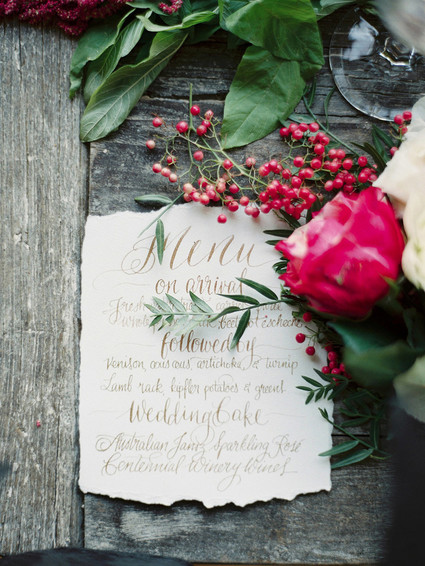 Menu
on arrival
Fresh
followed by
Venison, cous cous, artichoke, & turnip
Lamb rack, kipfler potatoes & greens
Wedding Cake
Australian Jansz Sparkling Rosé
Centennial Winery Wines